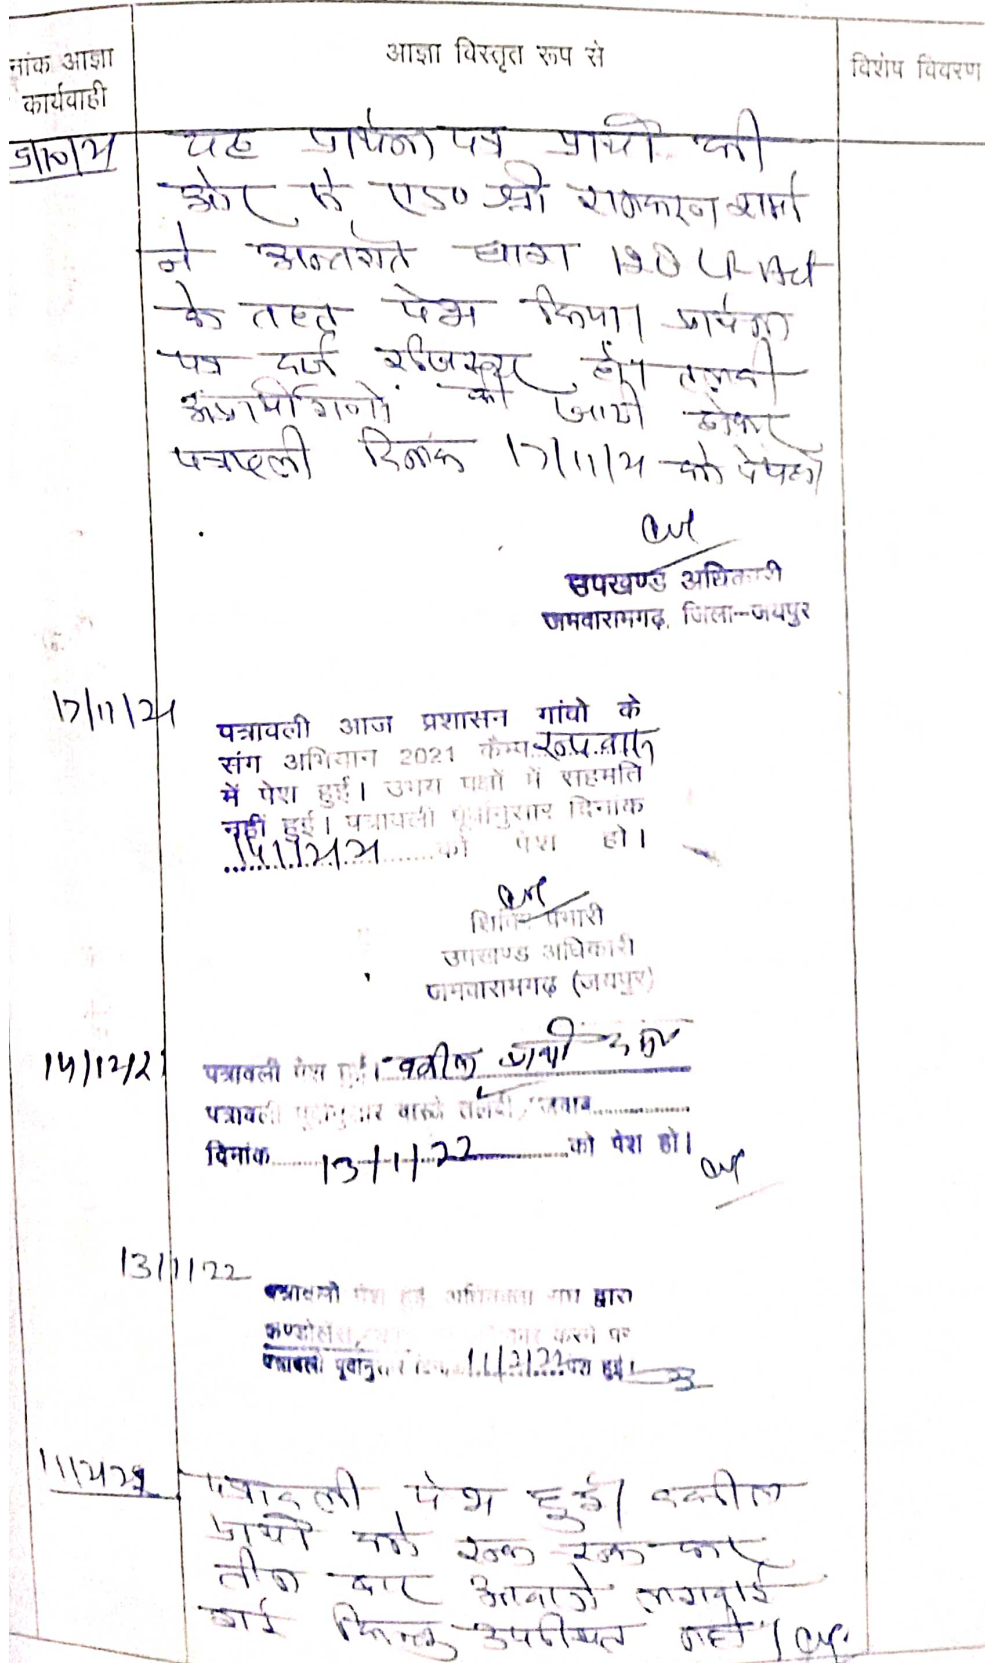 नांक आज्ञा
कार्यवाही
आज्ञा विस्तृत रूप से
विशेष विवरण
यह प्रार्थना पत्र प्रार्थी की
ओर से एड० श्री रामकरण शर्मा
ने अन्तर्गत धारा 128 LR Act
के तहत पेश किया। प्रार्थना
पत्र दर्ज रजिस्टर हो। तलबी
अप्रार्थीगणों की जारी होकर
पत्रावली दिनांक 17/11/21 को पेश हो
उपखण्ड अधिकारी
जमवारामगढ़, जिला-जयपुर
17/11/21
पत्रावली आज प्रशासन गांवो के
संग अभियान 2021 कैम्प
में पेश हुई। उभय पक्षों में सहमति
नहीं हुई। पत्रावली पूर्वानुसार दिनांक
14/12/21 को पेश हो।
शिविर प्रभारी
उपखण्ड अधिकारी
जमवारामगढ़ (जयपुर)
14/12/21
पत्रावली पेश हुई। वकील प्रार्थी
पत्रावली पूर्वानुसार वास्ते तलबी/जवाब
दिनांक 13/1/22 को पेश हो।
13/1/22
पत्रावली पेश हुई अधिवक्ता गण द्वारा
कण्डोलेंस करने पर
पत्रावली पूर्वानुसार 11/2/22 पेश हुई।
11/2/22
पत्रावली पेश हुई। वकील
प्रार्थी को रूक रूक कर
तीन बार आवाजे लगवाई
गई किन्तु उपस्थित नहीं।